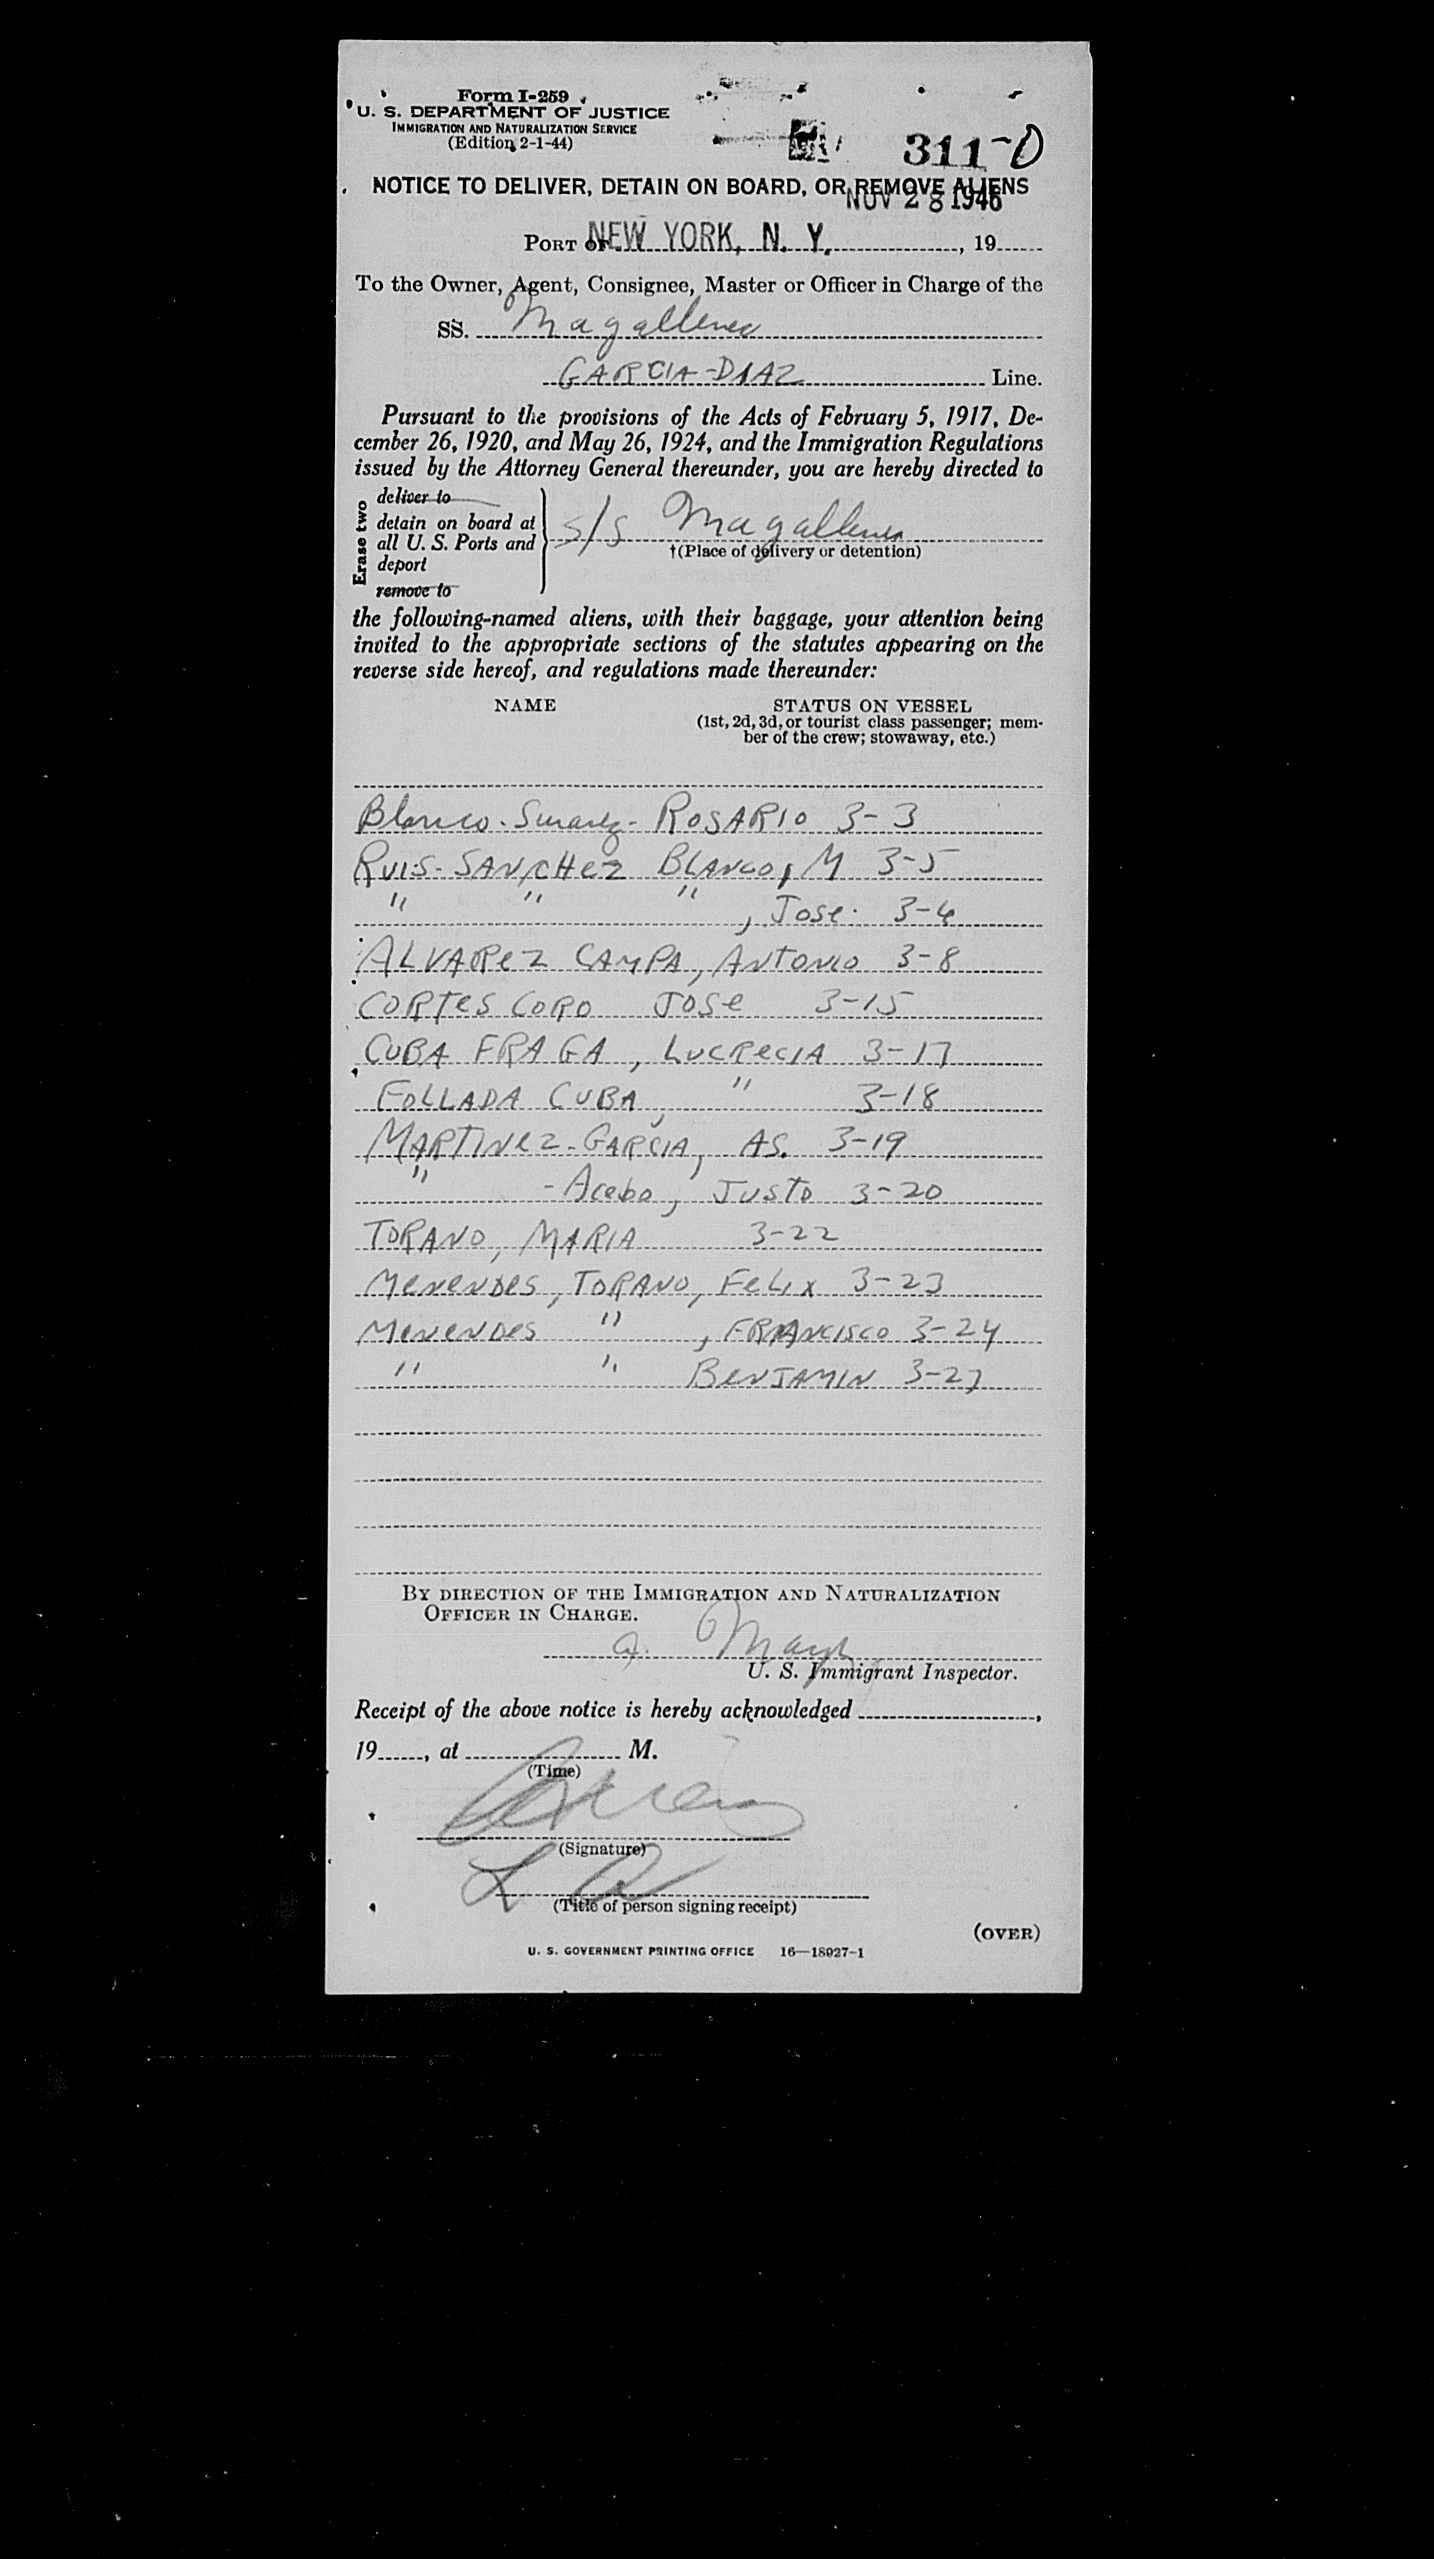 Form I-259
U. S. DEPARTMENT OF JUSTICE
IMMIGRATION AND NATURALIZATION SERVICE
(Edition 2-1-44)
311-D
NOTICE TO DELIVER, DETAIN ON BOARD, OR REMOVE ALIENS
NOV 28 1946
PORT OF NEW YORK, N. Y. , 19
To the Owner, Agent, Consignee, Master or Officer in Charge of the
SS. Magallenes
GARCIA-DIAZ Line.
Pursuant to the provisions of the Acts of February 5, 1917, De-
cember 26, 1920, and May 26, 1924, and the Immigration Regulations
issued by the Attorney General thereunder, you are hereby directed to
Erase two
deliver to
detain on board at
all U. S. Ports and
deport
remove to
s/s Magallenes
†(Place of delivery or detention)
the following-named aliens, with their baggage, your attention being
invited to the appropriate sections of the statutes appearing on the
reverse side hereof, and regulations made thereunder:
NAME STATUS ON VESSEL
(1st, 2d, 3d, or tourist class passenger; mem-
ber of the crew; stowaway, etc.)
Blanco-Suarez- ROSARIO 3-3
RUIS-SANCHEZ BLANCO, M 3-5
" " " , Jose. 3-6
ALVAREZ CAMPA, ANTONIO 3-8
CORTES CORO JOSE 3-15
CUBA FRAGA, LUCRECIA 3-17
FOLLADA CUBA, " 3-18
MARTINEZ-GARCIA, AS. 3-19
" -Acebo, JUSTO 3-20
TORANO, MARIA 3-22
MENENDES, TORANO, FELIX 3-23
MENENDES " , FRANCISCO 3-24
" " BENJAMIN 3-27
BY DIRECTION OF THE IMMIGRATION AND NATURALIZATION
OFFICER IN CHARGE.
U. S. Immigrant Inspector.
Receipt of the above notice is hereby acknowledged ,
19 , at M.
(Time)
(Signature)
(Title of person signing receipt)
(OVER)
U. S. GOVERNMENT PRINTING OFFICE 16—18027-1